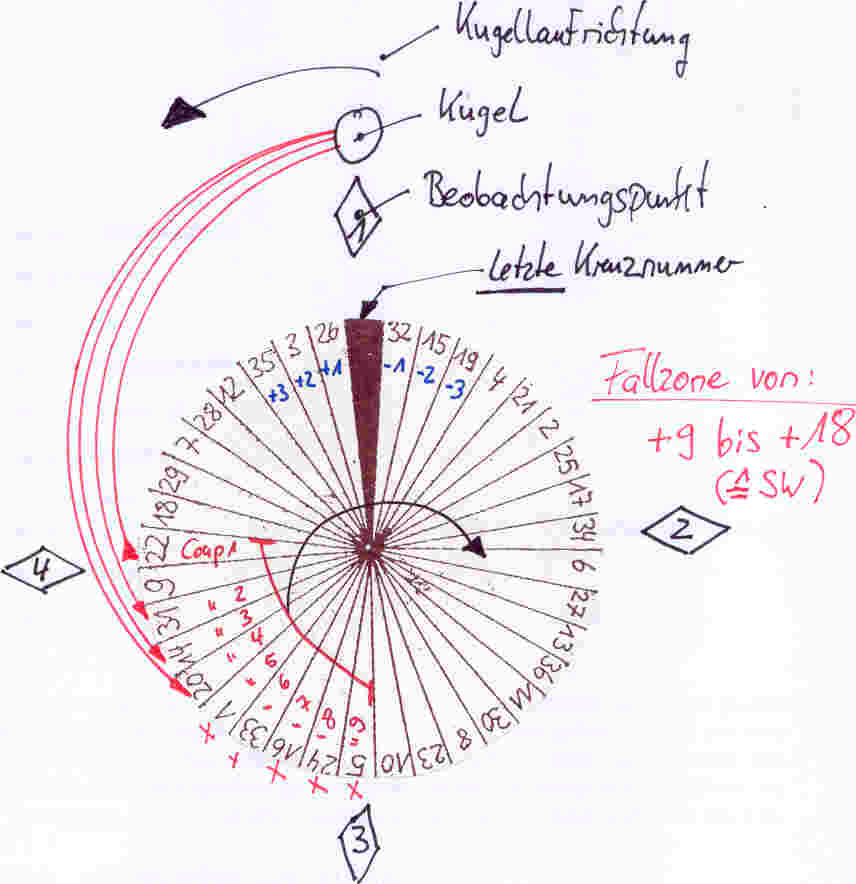 Kugellaufrichtung
Kugel
1
Beobachtungspunkt
letzte Kreuznummer
Fallzone von:
+9 bis +18
(≙ SW)
26 32 15 19 4 21 2 25 17 34 6 27 13 36 11 30 8 23 10 5 24 16 33 1 20 14 31 9 22 18 29 7 28 12 35 3
+3 +2 +1 -1 -2 -3
2
4
Coup 1
" 2
" 3
" 4
" 5
" 6
" 7
" 8
" 9
x x x x x
3